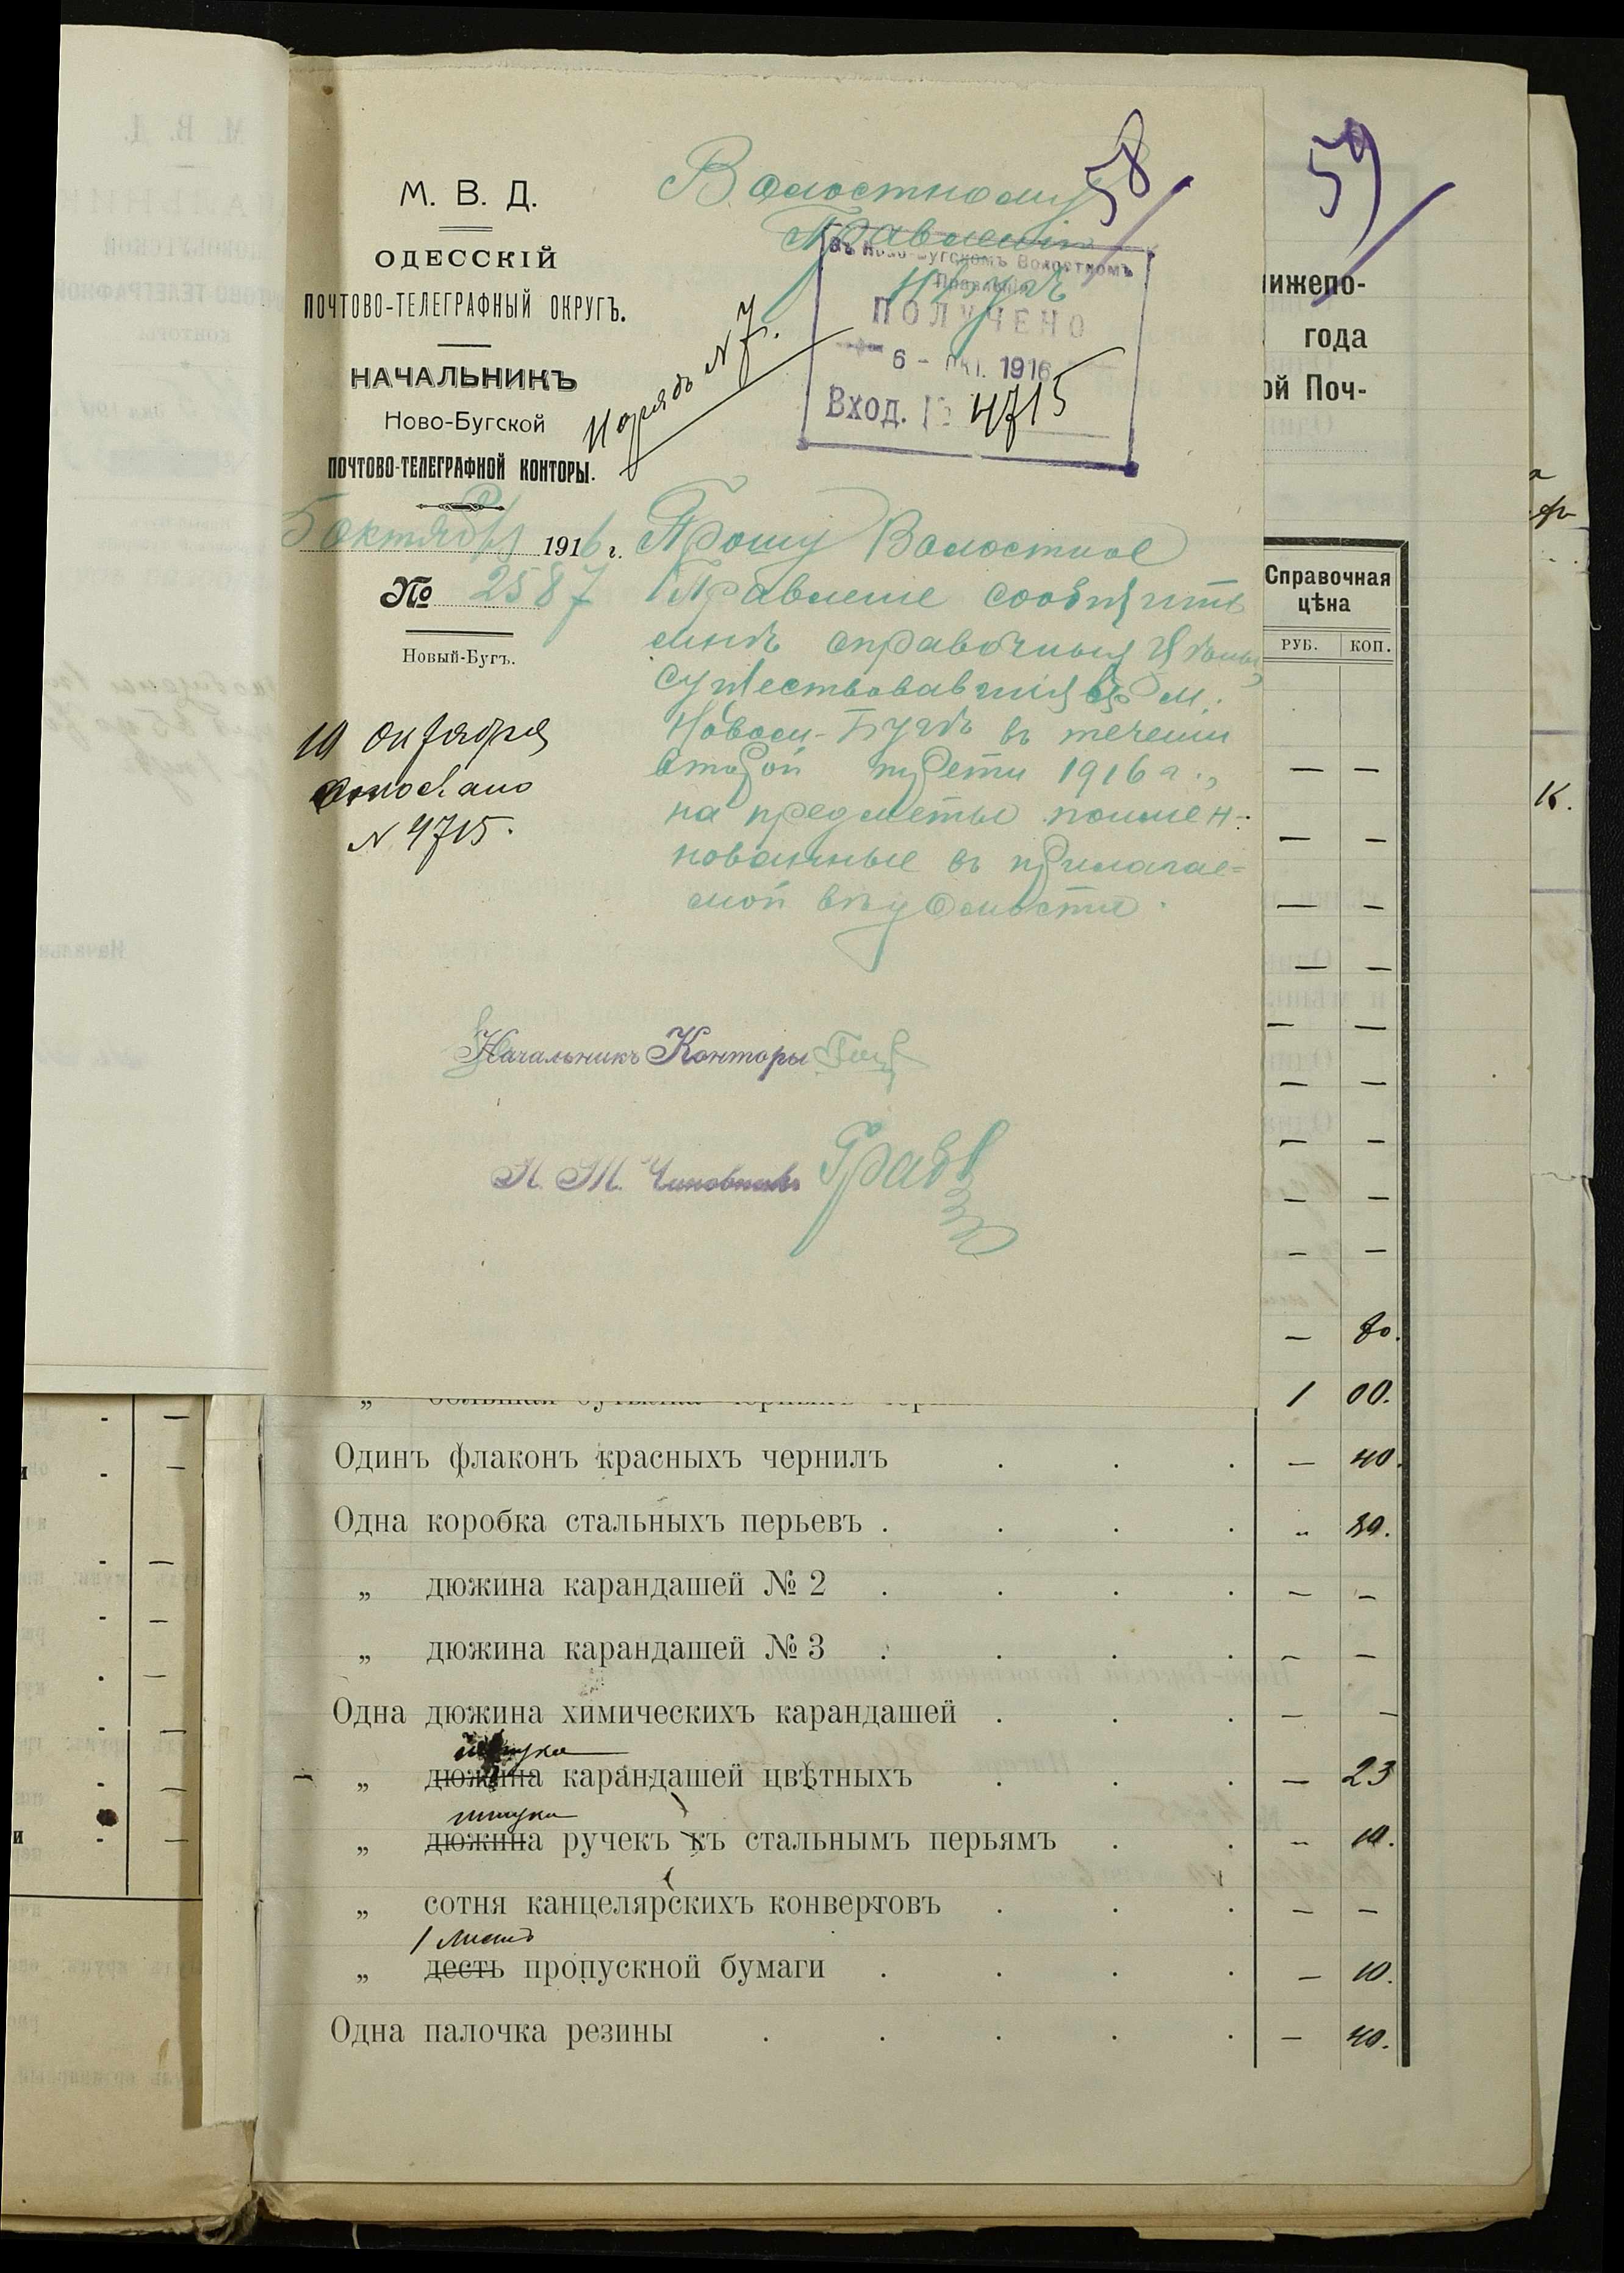 58
59
М. В. Д.
ОДЕССКІЙ
ПОЧТОВО-ТЕЛЕГРАФНЫЙ ОКРУГЪ.
НАЧАЛЬНИКЪ
Ново-Бугской
ПОЧТОВО-ТЕЛЕГРАФНОЙ КОНТОРЫ.
5 октября 1916 г.
№ 2587
Новый-Бугъ.
10 октября
N 4715.
Волостному
Правленію
Нарядъ N 7.
Въ Ново-Бугскомъ Волостномъ
Правленіи
ПОЛУЧЕНО
6 - ОКТ. 1916
Вход. № 4715
Прошу Волостное
Правленіе сообщить
мнѣ справочныя цѣны,
существовавшія въ м.
Новомъ-Бугѣ въ теченіи
второй трети 1916 г.,
на предметы поимен-
нованные въ прилагае-
мой вѣдомости.
Начальникъ Конторы
П. Т. Чиновникъ
нижепо-
года
ой Поч-
Справочная
цѣна
РУБ. КОП.
— —
— —
— —
— —
— —
— —
— —
— —
— —
— 80.
„ большая бутылка черныхъ черн 1 00.
Одинъ флаконъ красныхъ чернилъ . . . — 40.
Одна коробка стальныхъ перьевъ . . . . „ 80.
„ дюжина карандашей № 2 . . . . — —
„ дюжина карандашей № 3 . . . . — —
Одна дюжина химическихъ карандашей . . . — —
штука
„ дюжина карандашей цвѣтныхъ . . . — 23
штука
„ дюжина ручекъ къ стальнымъ перьямъ . . — 10.
„ сотня канцелярскихъ конвертовъ . . . — —
1 листъ
„ десть пропускной бумаги . . . . — 10.
Одна палочка резины . . . . . — 40.
к.